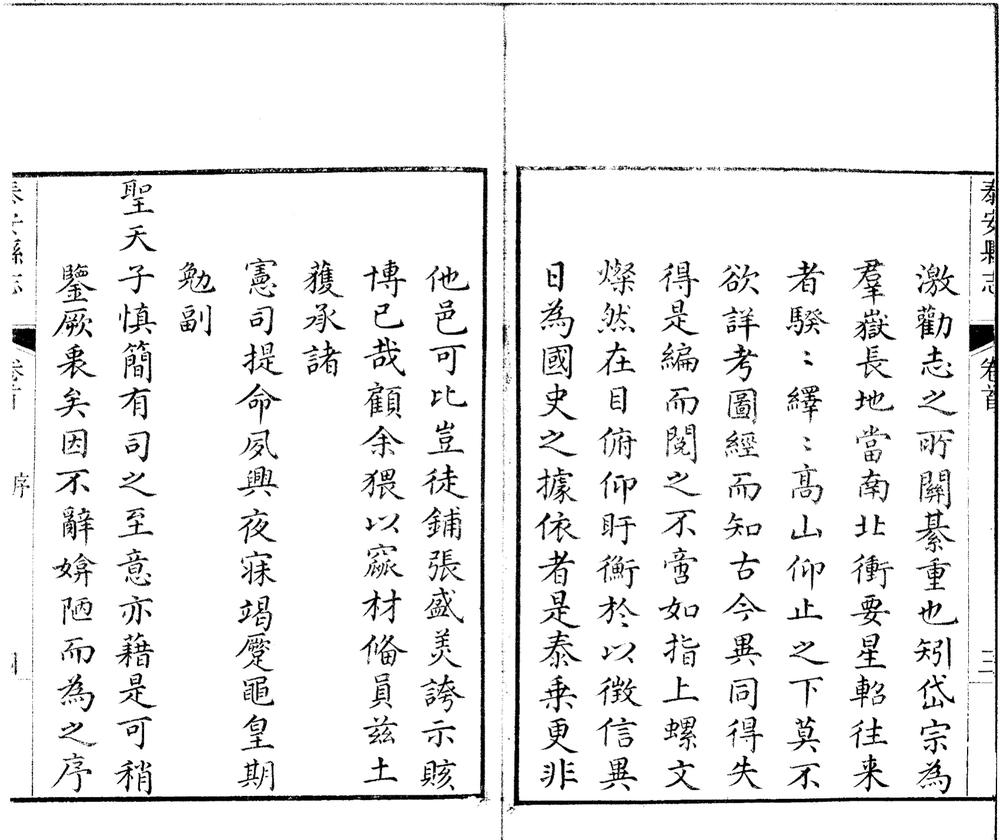 泰安縣志 卷首 三
激勸志之所關綦重也矧岱宗為
羣嶽長地當南北衝要星軺往来
者騤〻繹〻高山仰止之下莫不
欲詳考圖經而知古今異同得失
得是編而閱之不啻如指上螺文
燦然在目俯仰盱衡於以徴信異
日為國史之據依者是泰乗更非
他邑可比豈徒鋪張盛美誇示賅
博已哉顧余猥以窳材備員兹土
獲承諸
憲司提命夙興夜寐竭蹷黽皇期
勉副
聖天子慎簡有司之至意亦藉是可稍
鑒厥衷矣因不辭媕陋而為之序
泰安縣志 卷首 序